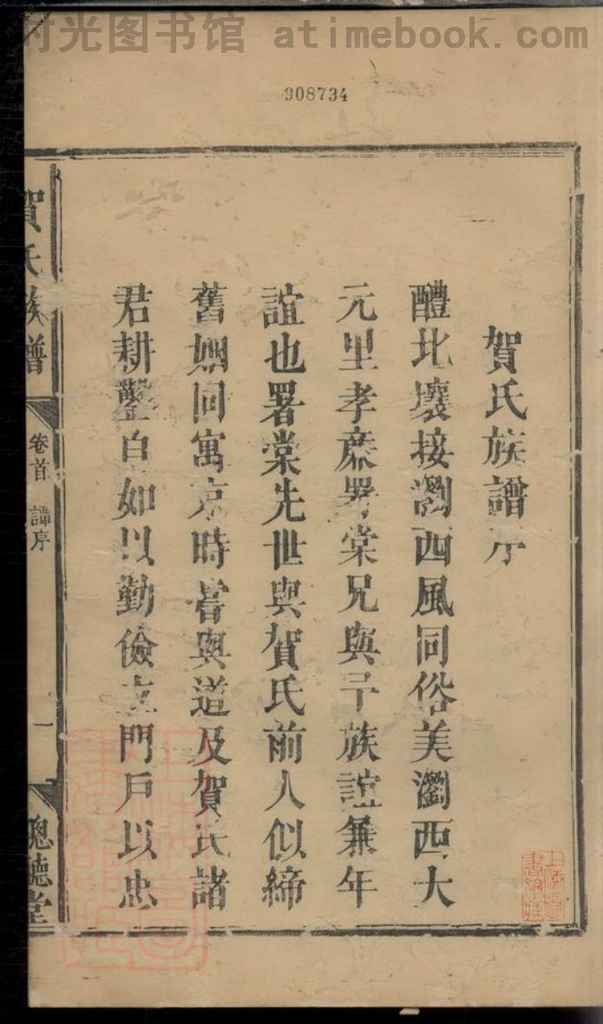 时光图书馆 atimebook.com
308734
賀氏族譜序
醴北壤接瀏西風同俗美瀏西大
元里孝廉署棠兄與予族誼兼年
誼也署棠先世與賀氏前人似締
舊姻同寓京時嘗與道及賀氏諸
君耕鑿自如以勤儉立門戶以忠
賀氏族譜
卷首 譜序
一
聰聽堂